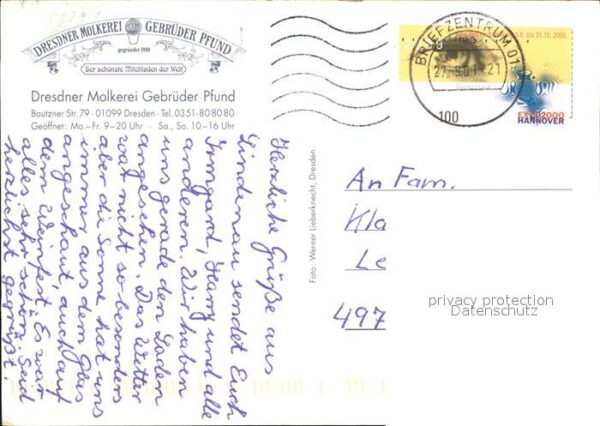 DRESDNER MOLKEREI GEBRÜDER PFUND
gegründet 1880
Der schönste Milchladen der Welt
Dresdner Molkerei Gebrüder Pfund
Bautzner Str. 79 · 01099 Dresden · Tel. 0351-80 80 80
Geöffnet: Mo. - Fr. 9 - 20 Uhr · Sa., So. 10 - 16 Uhr
Herzliche Grüße aus
Lindenau sendet Euch
Irmgard, Harry und alle
anderen. Wir haben
uns gerade den Laden
angesehen. Das Wetter
war nicht so besonders
aber die Sonne hat uns
immer aus dem Glas
angeschaut, auch auf
dem Weinfest. Es war
alles sehr schön. Seid
herzlichst gegrüßt.
Foto: Werner Lieberknecht, Dresden
BRIEFZENTRUM 01
27.-9.01-21
100
1.6. bis 31.10.2000
EXPO2000
HANNOVER
An Fam.
Kla
Le
497
privacy protection
Datenschutz